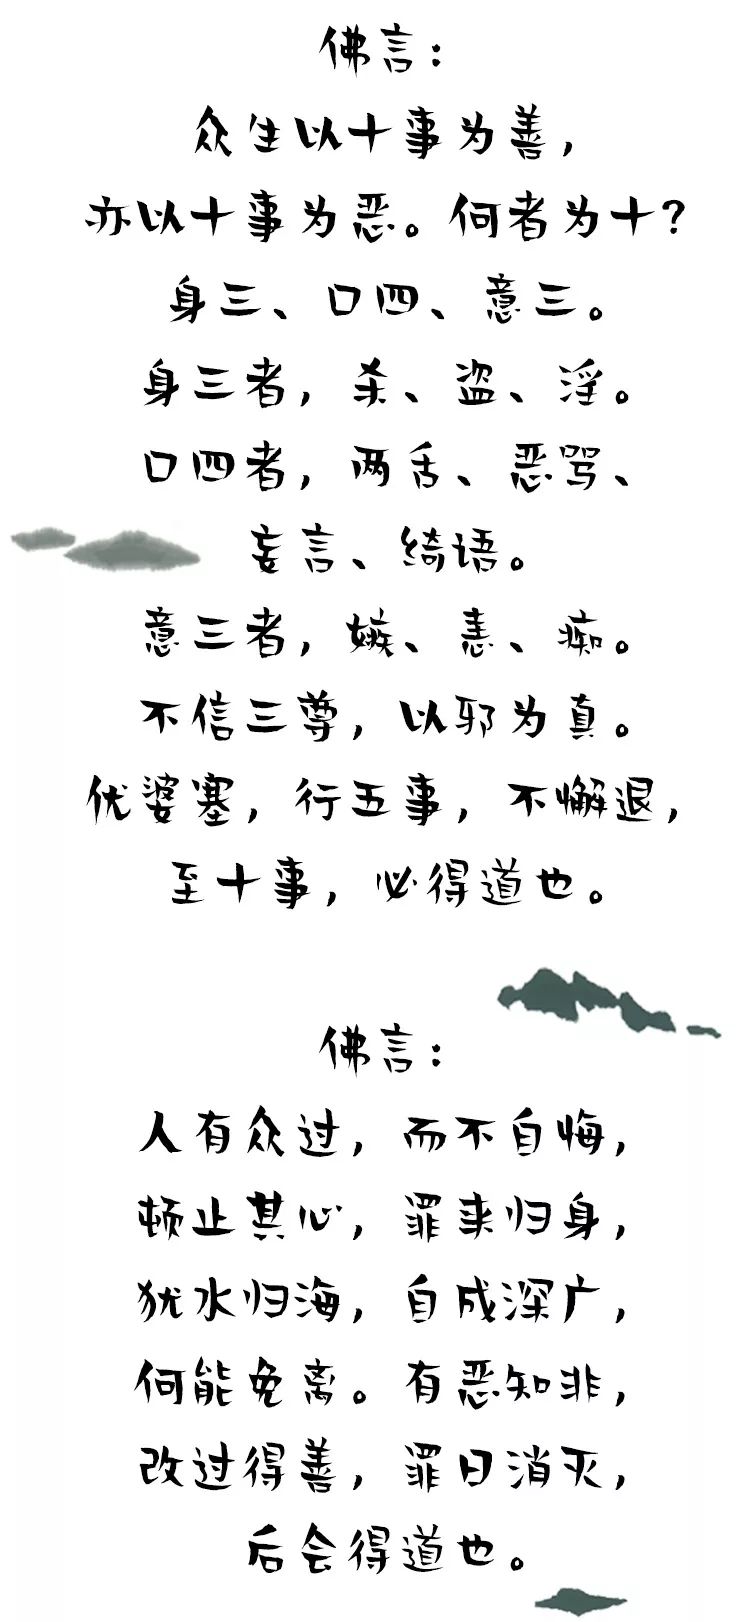 佛言：
众生以十事为善，
亦以十事为恶。何者为十？
身三、口四、意三。
身三者，杀、盗、淫。
口四者，两舌、恶骂、
妄言、绮语。
意三者，嫉、恚、痴。
不信三尊，以邪为真。
优婆塞，行五事，不懈退，
至十事，必得道也。
佛言：
人有众过，而不自悔，
顿止其心，罪来归身，
犹水归海，自成深广，
何能免离。有恶知非，
改过得善，罪日消灭，
后会得道也。